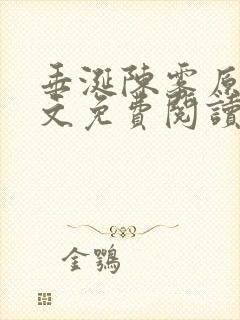 垂涎陳雾原
文免費閱讀
金鶚